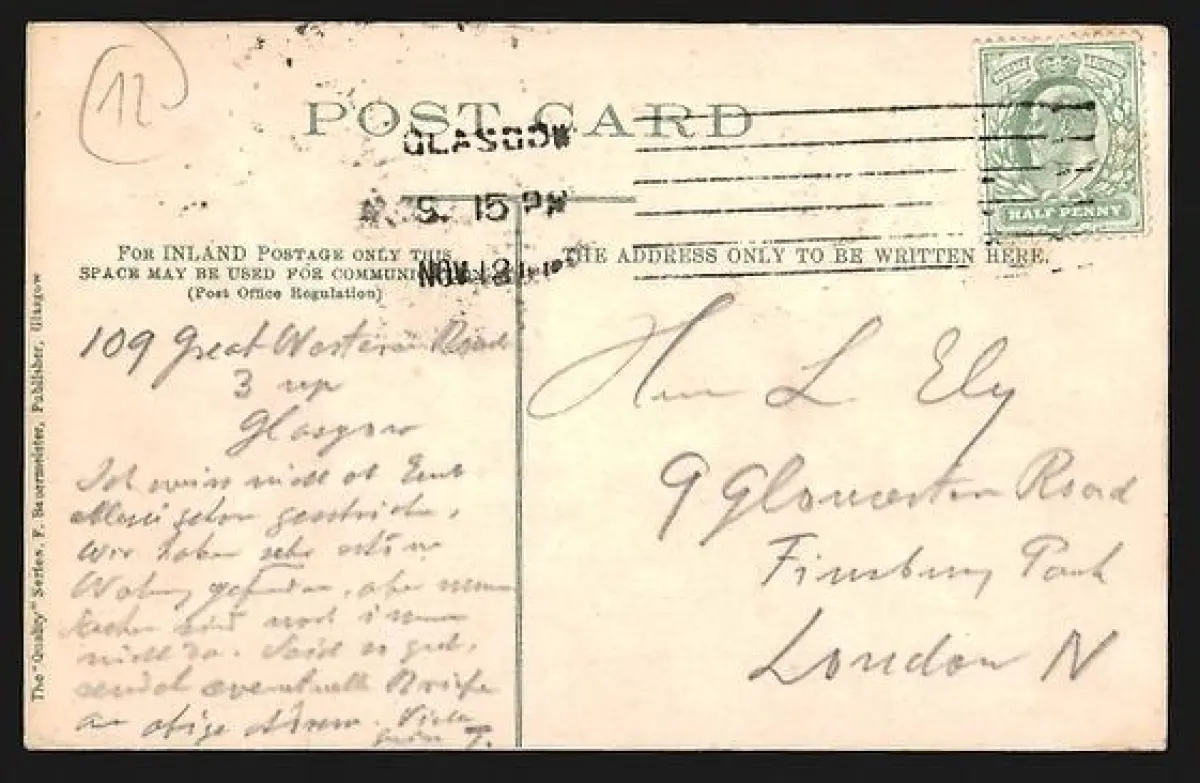 12
POST CARD
GLASGOW
5. 15 PM
NOV 12
HALF PENNY
FOR INLAND POSTAGE ONLY THIS
SPACE MAY BE USED FOR COMMUNIC
(Post Office Regulation)
THE ADDRESS ONLY TO BE WRITTEN HERE.
The "Quality" Series, F. Bauermeister, Publisher, Glasgow
109 Great Western Road
3 up
Glasgow
Ich weiss nicht ob Euch
schon geschrieben.
Wir haben sehr schöne
gefunden, aber meine
Sachen sind noch immer
nicht da. Seid so gut,
sendet eventuelle Briefe
an obige Adresse. Viele
Grüsse T.
Herrn L Ely
9 Gloucester Road
Finsbury Park
London N